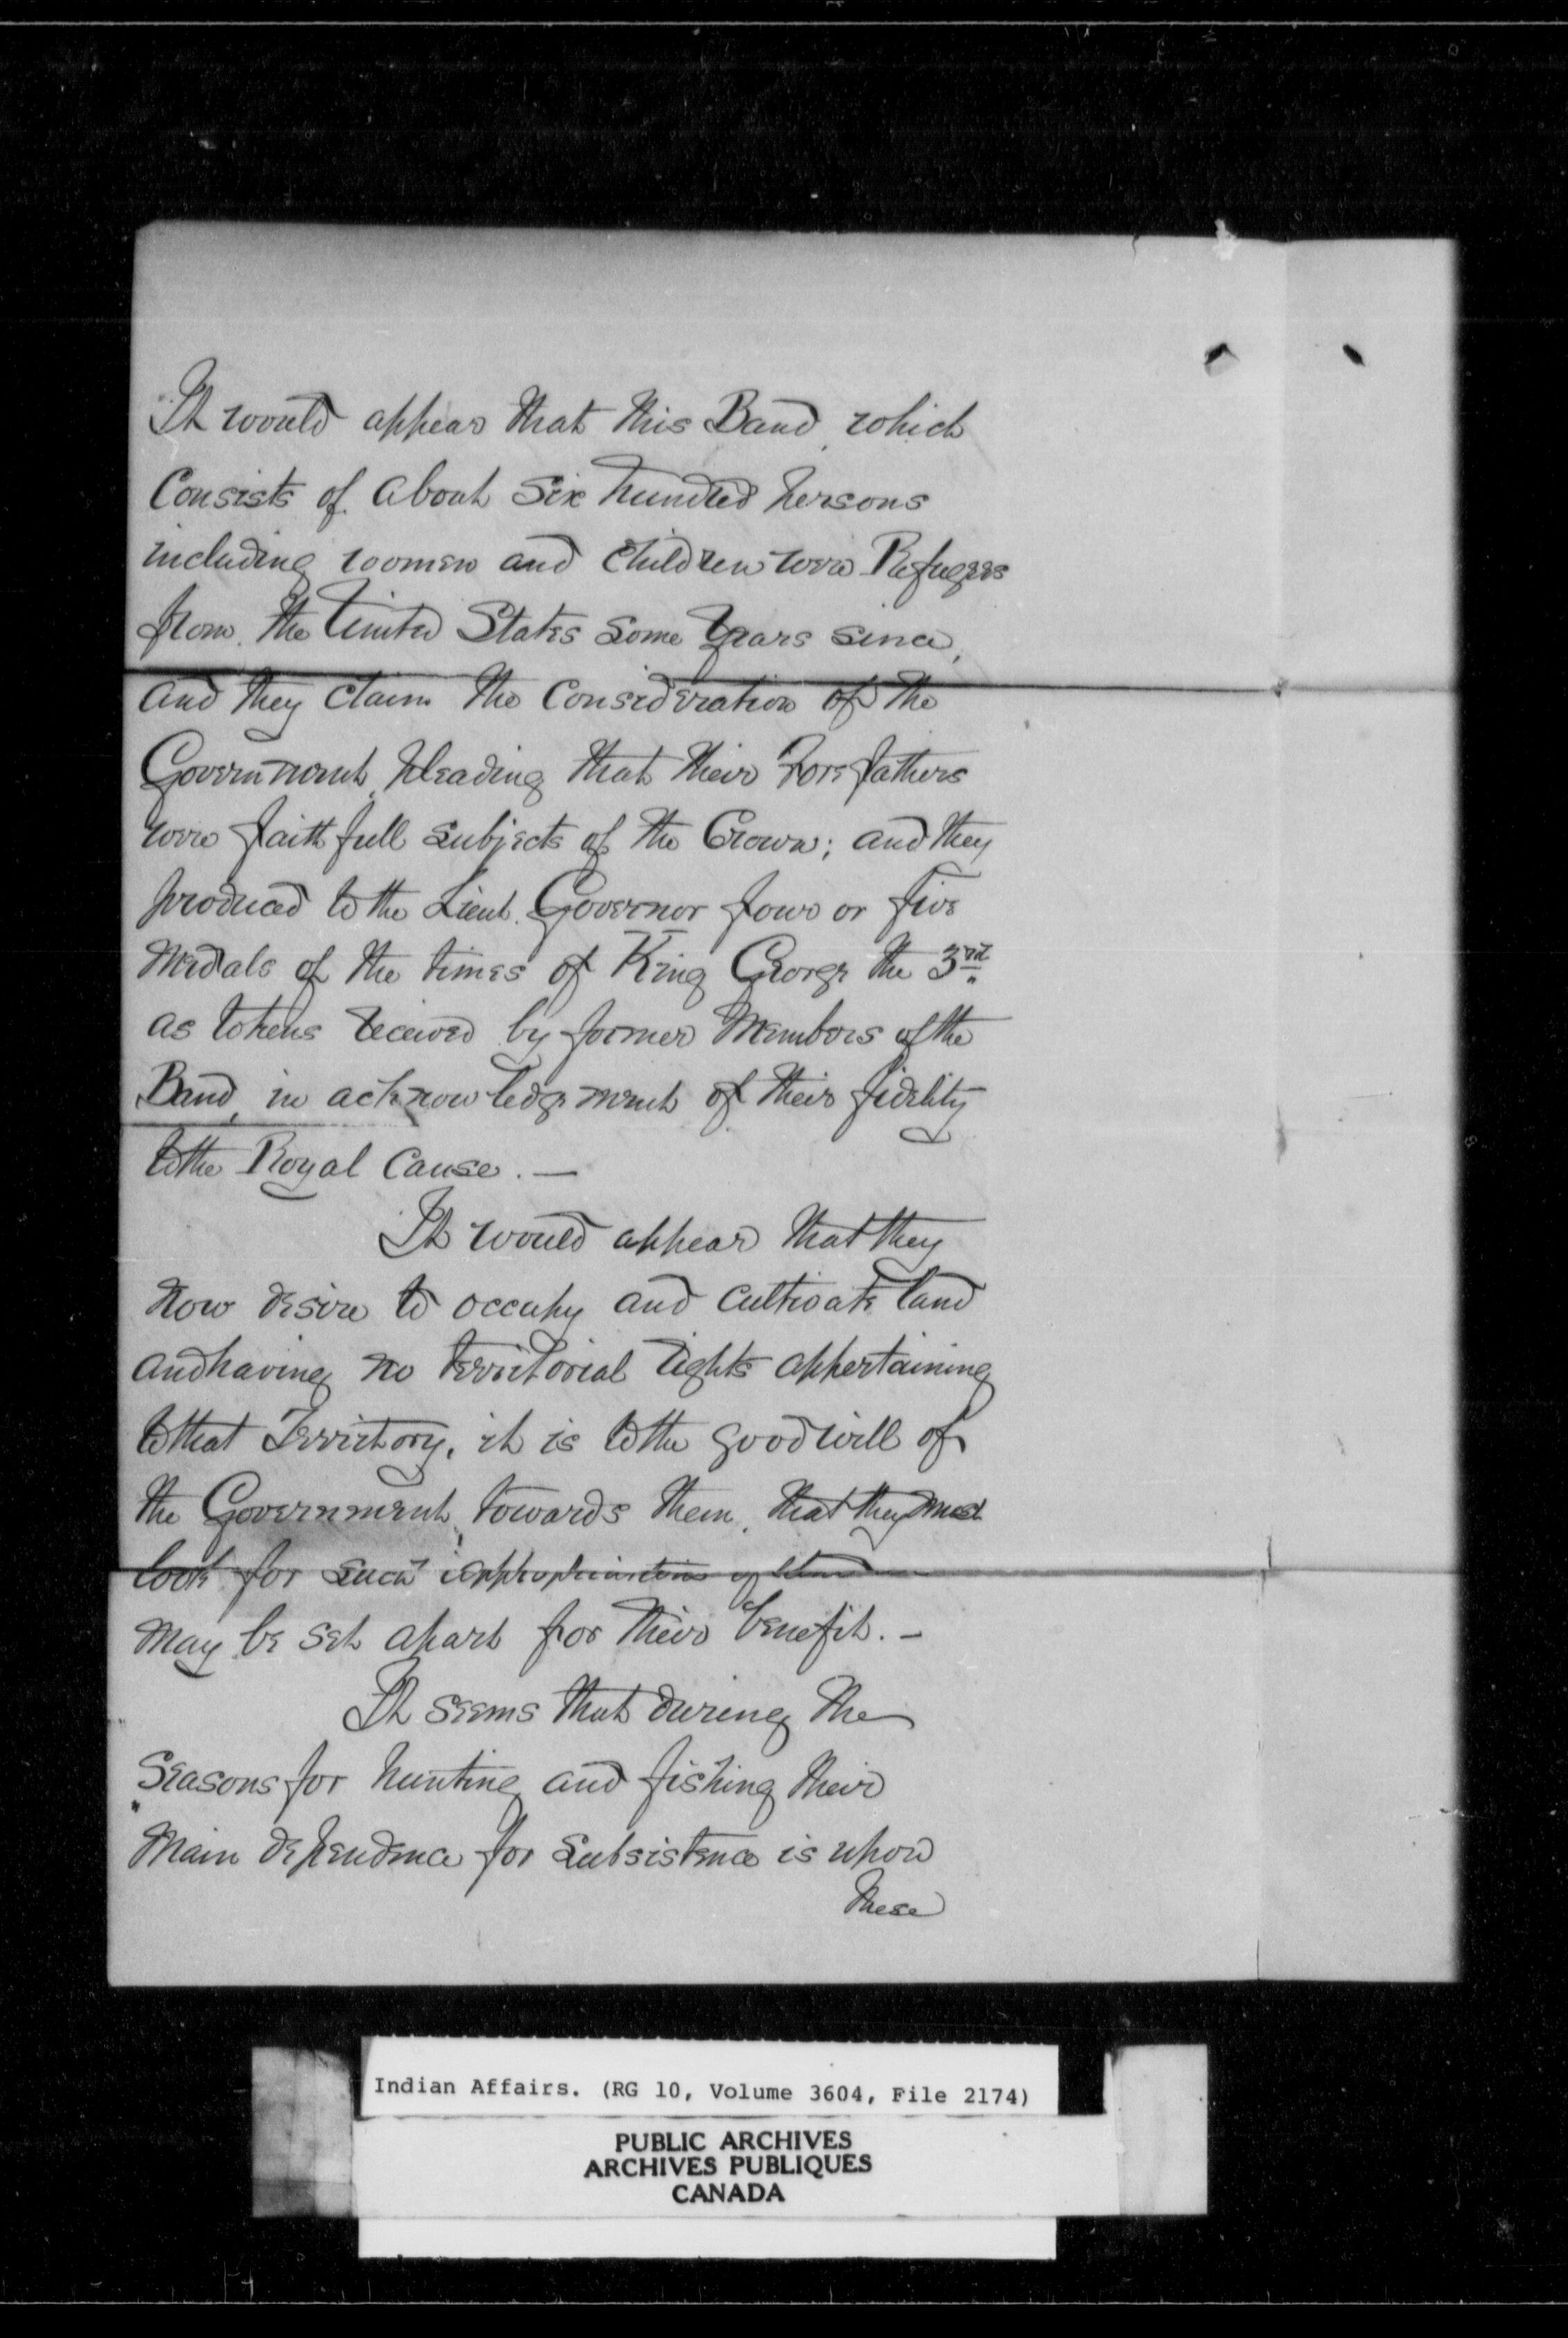 It would appear that this Band, which
Consists of about Six hundred persons
including women and Children were Refugees
from the United States some Years since,
and they claim the Consideration of the
Government, pleading that their Forefathers
were faithfull subjects of the Crown; and they
produced to the Lieut. Governor four or five
Medals of the times of King George the 3rd.
as tokens received by former Members of the
Band, in acknowledgment of their fidelity
to the Royal Cause. —
It would appear that they
now desire to occupy and cultivate land
and having no territorial rights appertaining
to that Territory, it is to the good will of
the Government, towards them, that they must
look for such appropriation of land
may be set apart for their benefit. —
It seems that during the
Seasons for hunting and fishing their
main dependence for subsistence is upon
these
Indian Affairs. (RG 10, Volume 3604, File 2174)
PUBLIC ARCHIVES
ARCHIVES PUBLIQUES
CANADA